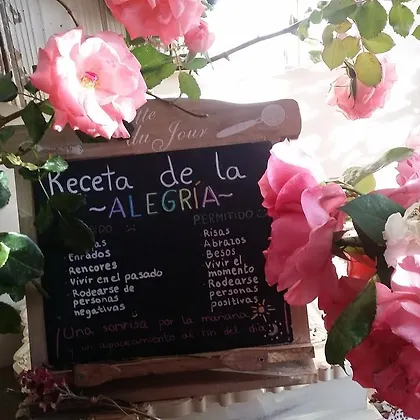 du Jour
Receta de la
~ALEGRÍA~
PERMITIDO
Enfados
Rencores
Vivir en el pasado
Rodearse de
personas
negativas
Risas
Abrazos
Besos
Vivir el
momento
Rodearse
personas
positivas
¡Una sonrisa por la mañana
y un agradecimiento al fin del día